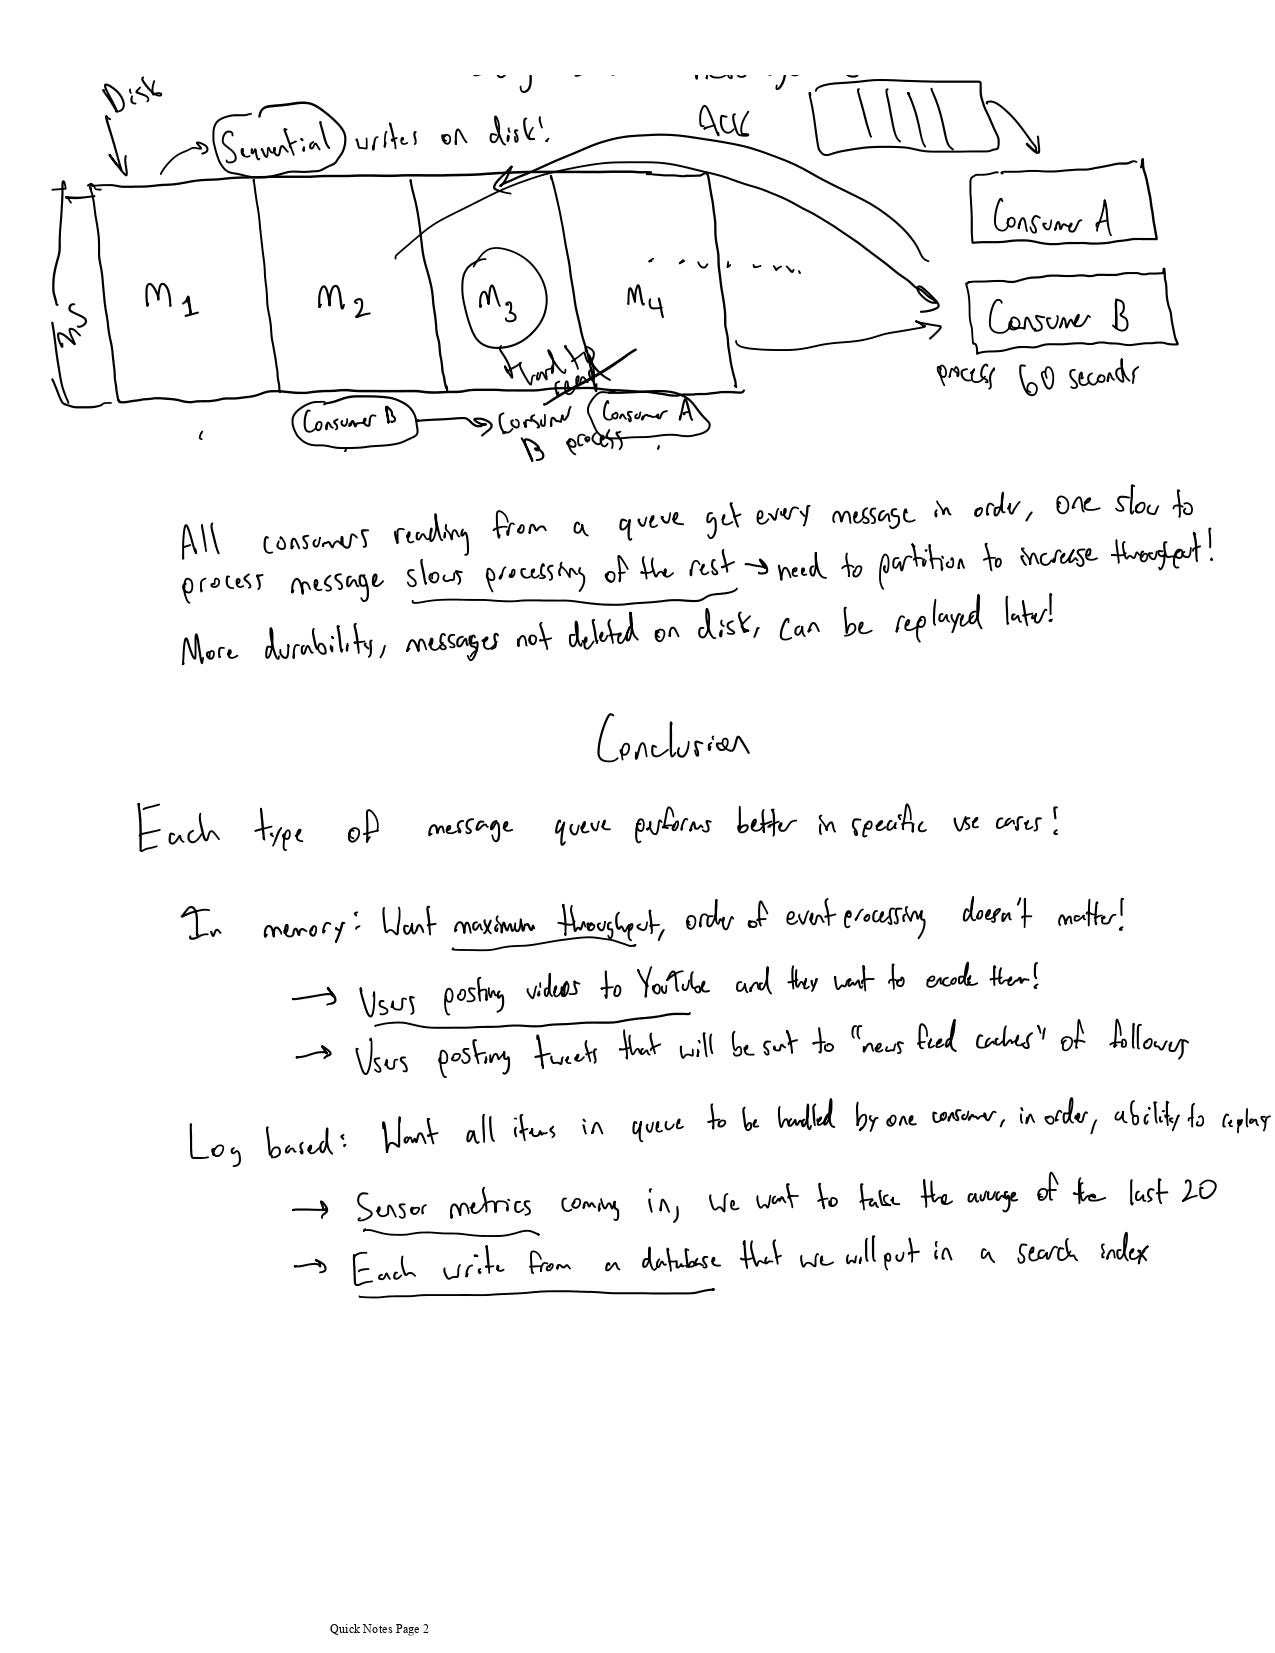 Disk
ACK
Sequential writes on disk!
Consumer A
M1 M2 M3 M4
M5
Consumer B
hard to
read
process 60 seconds
Consumer B Consumer Consumer A
B process
All consumers reading from a queue get every message in order, one slow to
process message slows processing of the rest → need to partition to increase throughput!
More durability, messages not deleted on disk, can be replayed later!
Conclusion
Each type of message queue performs better in specific use cases!
In memory: Want maximum throughput, order of event processing doesn't matter!
→ Users posting videos to YouTube and they want to encode them!
→ Users posting tweets that will be sent to "news feed caches" of followers
Log based: Want all items in queue to be handled by one consumer, in order, ability to replay
→ Sensor metrics coming in, we want to take the average of the last 20
→ Each write from a database that we will put in a search index
Quick Notes Page 2